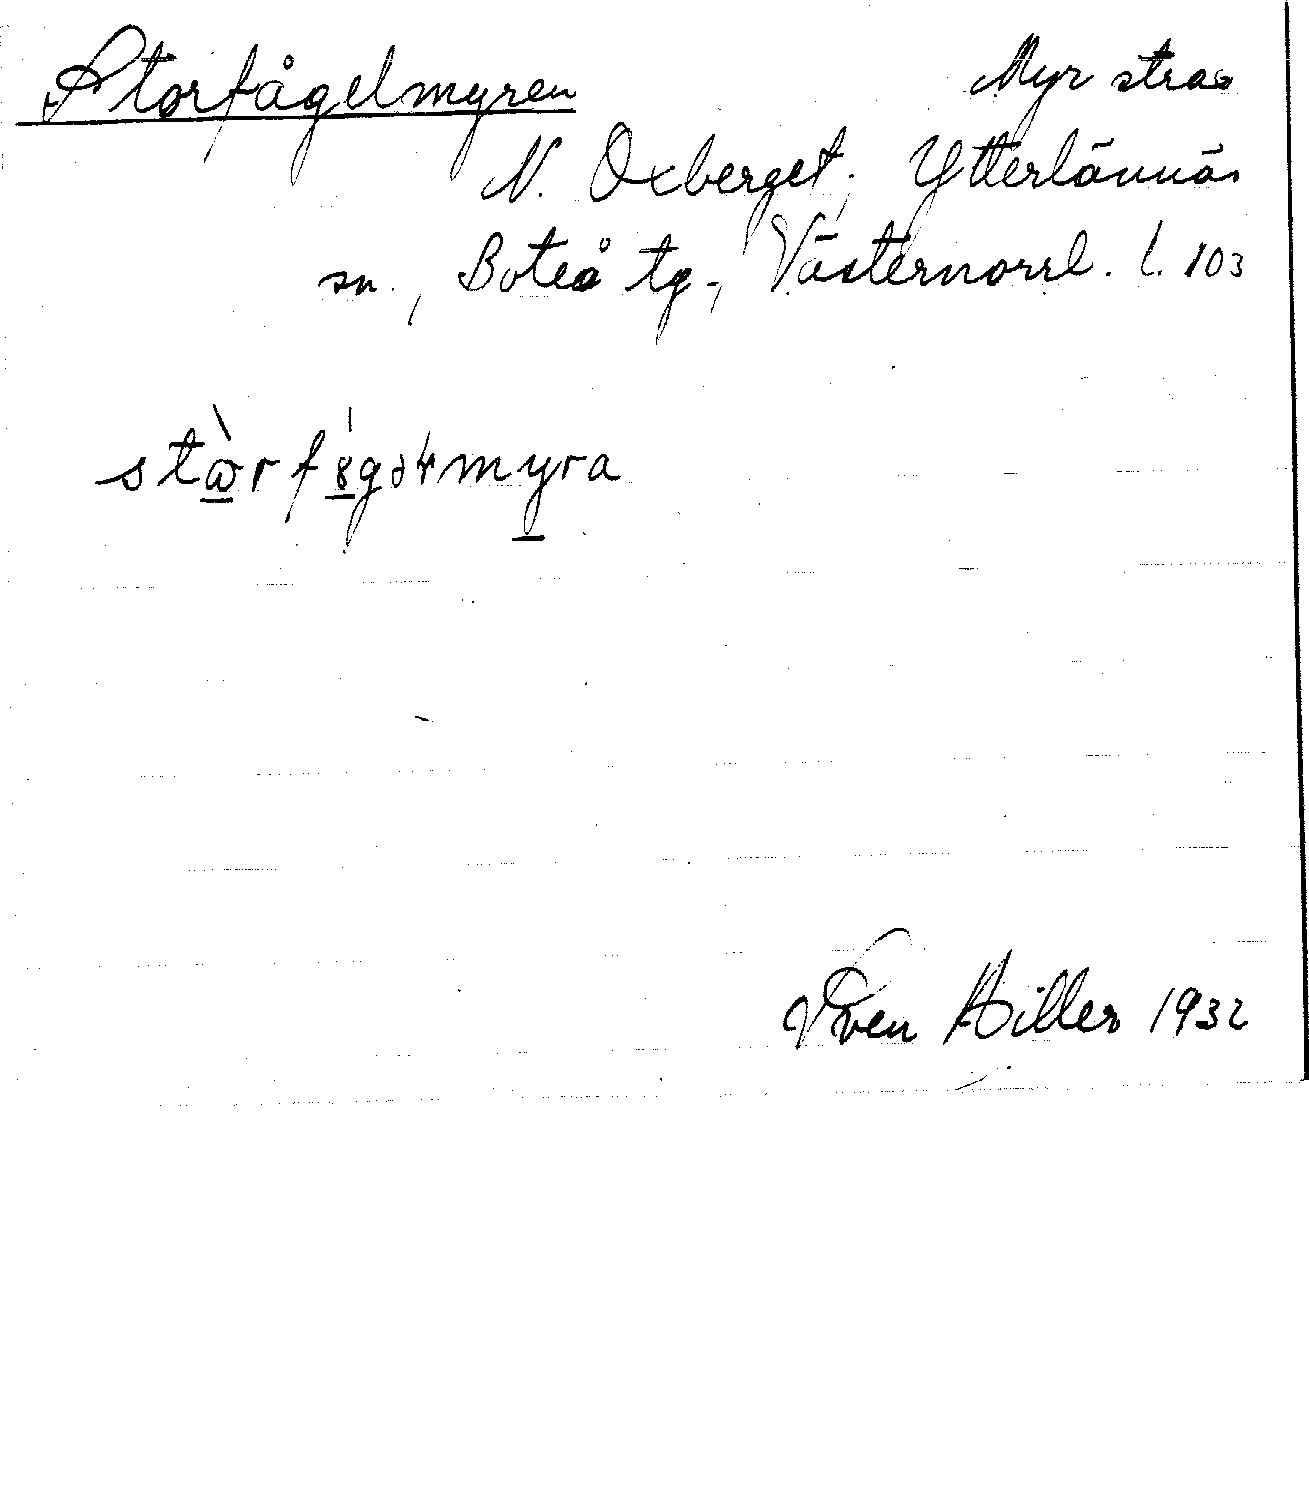 Storfågelmyren Myr strax
N. Oxberget, Ytterlännäs
sn., Boteå tg., Västernorrl. l. 103
stɷ̀rfȣ́gəɬmyra
Sven Hiller 1932